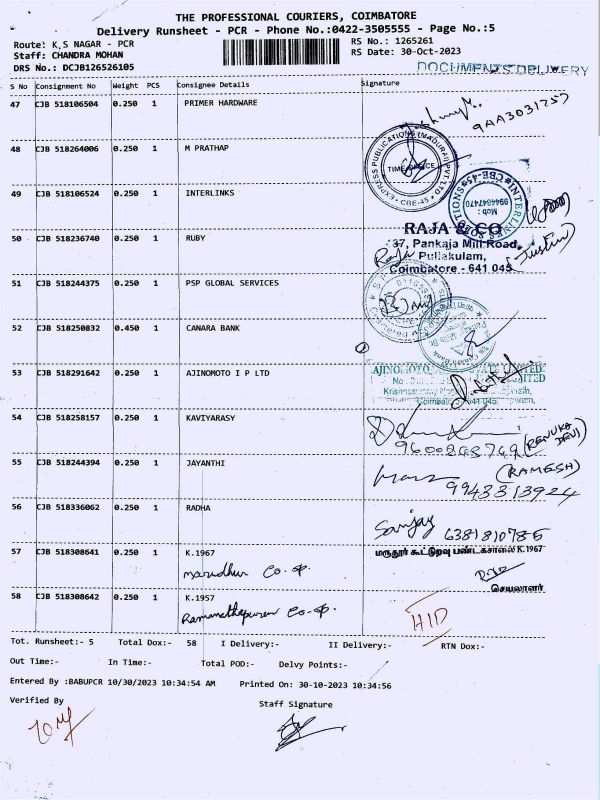 THE PROFESSIONAL COURIERS, COIMBATORE
Delivery Runsheet - PCR - Phone No.:0422-3505555 - Page No.:5
Route: K,S NAGAR - PCR
RS No.: 1265261
Staff: CHANDRA MOHAN
RS Date: 30-Oct-2023
DRS No.: DCJB126526105
DOCUMENTS DELIVERY
S No Consignment No Weight PCS Consignee Details Signature
47 CJB 518106504 0.250 1 PRIMER HARDWARE
9AA3031257
48 CJB 518264006 0.250 1 M PRATHAP
EXPRESS PUBLICATIONS (MADURAI) PVT. LTD
TIME OFFICE
CBE-45
49 CJB 518106524 0.250 1 INTERLINKS
50 CJB 518236740 0.250 1 RUBY
RAJA & CO
37, Pankaja Mill Road,
Puliakulam,
Coimbatore - 641 045
Raja
(Justin)
51 CJB 518244375 0.250 1 PSP GLOBAL SERVICES
52 CJB 518250832 0.450 1 CANARA BANK
53 CJB 518291642 0.250 1 AJINOMOTO I P LTD
54 CJB 518258157 0.250 1 KAVIYARASY
(RENUKA DEVI)
55 CJB 518244394 0.250 1 JAYANTHI
(RAMESH)
9943813924
56 CJB 518336062 0.250 1 RADHA
Sanjay 6381810785
57 CJB 518308641 0.250 1 K.1967
marudhur Co-op.
மருதூர் கூட்டுறவு பண்டகசாலை K.1967
செயலாளர்
58 CJB 518308642 0.250 1 K.1957
Ramanathapuram Co-op.
HID
Tot. Runsheet:- 5 Total Dox:- 58 I Delivery:- II Delivery:- RTN Dox:-
Out Time:- In Time:- Total POD:- Delvy Points:-
Entered By :BABUPCR 10/30/2023 10:34:54 AM Printed On: 30-10-2023 10:34:56
Verified By
Staff Signature